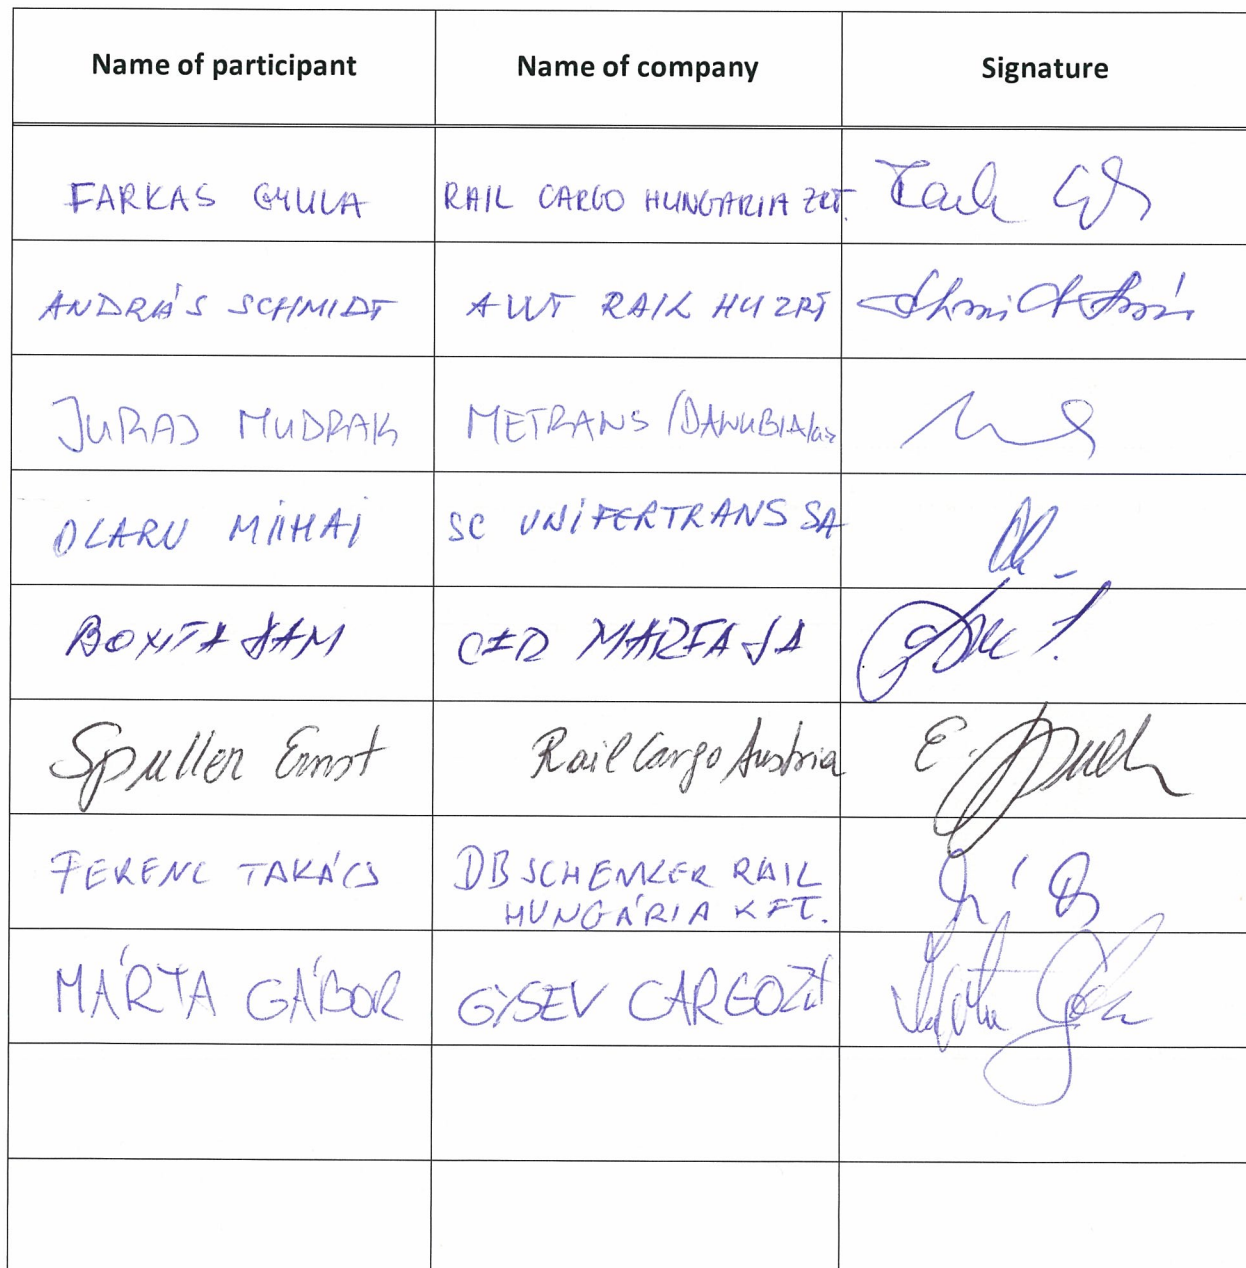 Name of participant Name of company Signature
FARKAS GYULA RAIL CARGO HUNGARIA ZRT.
ANDRÁS SCHMIDT AWT RAIL HU ZRT
JURAJ MUDRAK METRANS /DANUBIA/
OLARU MIHAI SC UNIFERTRANS SA
MARFA SA
Spuller Ernst Rail Cargo Austria E.
FERENC TAKÁCS DB SCHENKER RAIL
HUNGÁRIA KFT.
MÁRTA GÁBOR GYSEV CARGO Zrt